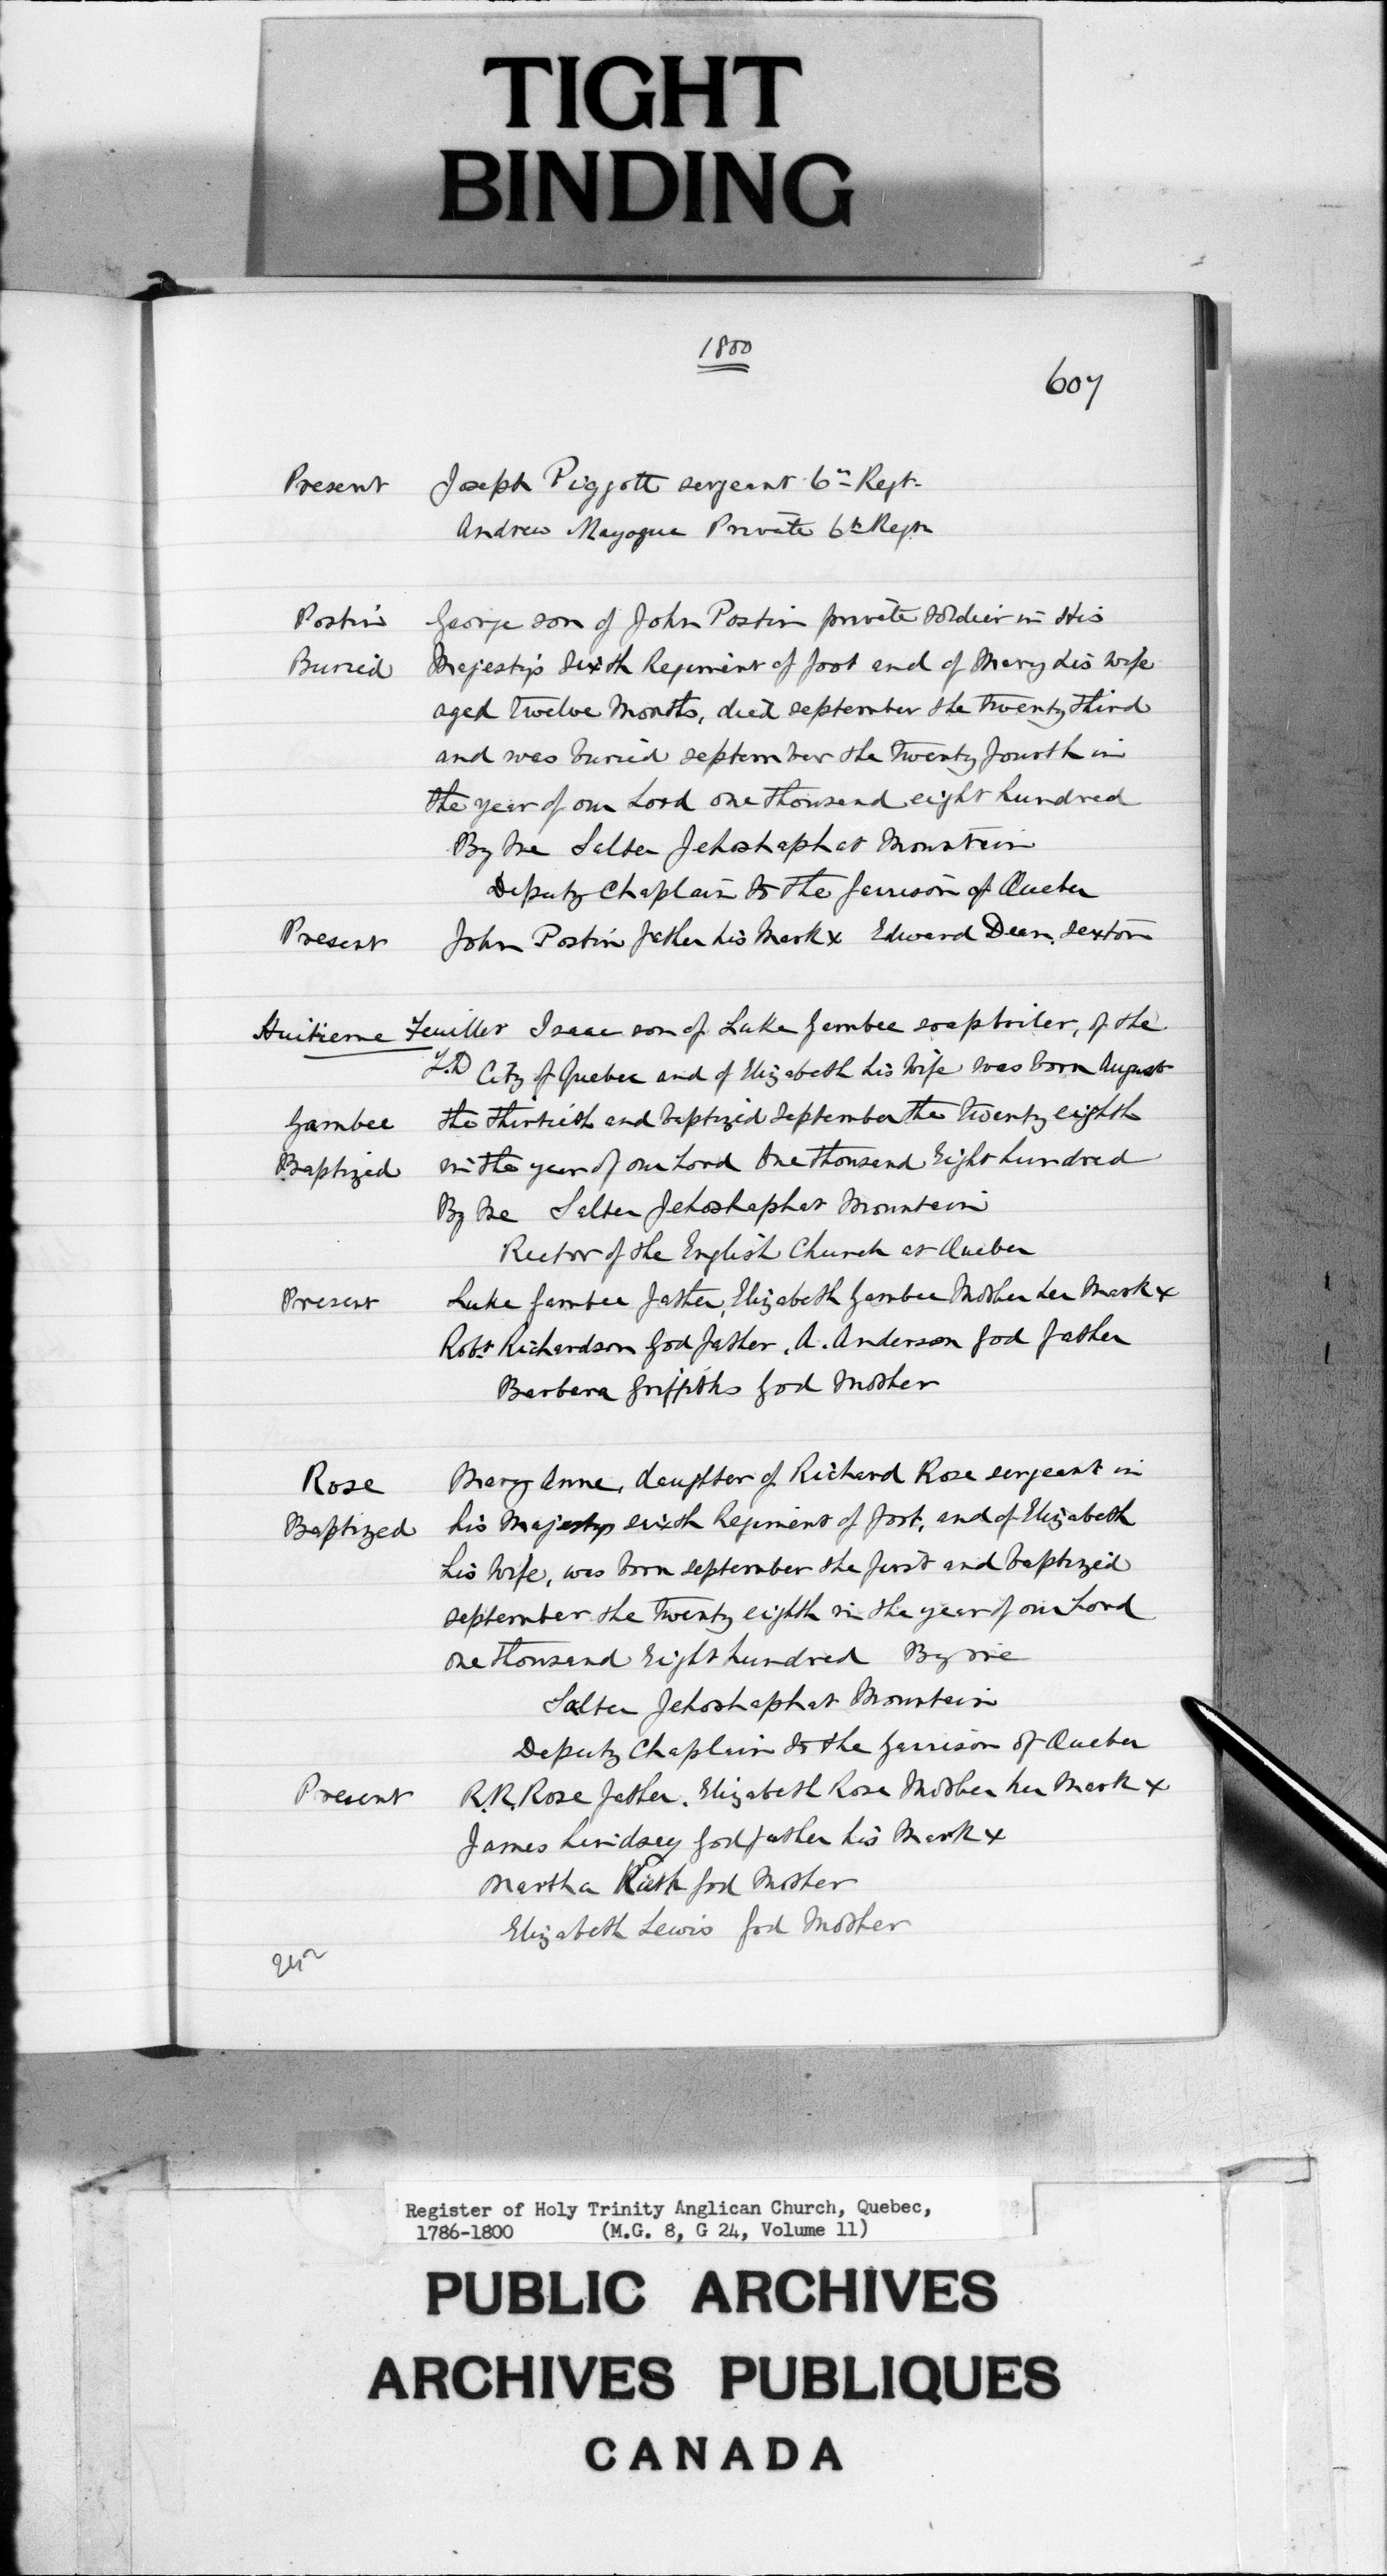 TIGHT
BINDING
1800
607
Present Joseph Piggott sergeant 6th Regt.
Andrew Mayogue Private 6th Regt
Postin George son of John Postin private soldier in His
Buried Majesty's sixth Regiment of foot and of Mary his wife
aged Twelve Months, died september the twenty third
and was buried september the Twenty fourth in
the year of our Lord one thousand eight hundred
By Me Salter Jehoshaphat Mountain
Deputy Chaplain to the Garrison of Quebec
Present John Postin father his Mark x Edward Dean, sexton
Huitieme Feuillet Isaac son of Luke Gambee soapboiler, of the
City of Quebec and of Elizabeth his wife was born August
Gambee the thirtieth and baptized September the Twenty eighth
Baptized in the year of our Lord One thousand Eight hundred
By Me Salter Jehoshaphat Mountain
Rector of the English Church at Quebec
Present Luke Gambee father, Elizabeth Gambee Mother her Mark x
Robt Richardson God father, A. Anderson God father
Barbara Griffiths God Mother
Rose Mary Anne, daughter of Richard Rose sergeant in
Baptized his Majestys sixth Regiment of foot, and of Elizabeth
his wife, was born september the first and baptized
september the Twenty eighth in the year of our Lord
one thousand Eight hundred By me
Salter Jehoshaphat Mountain
Deputy Chaplain to the Garrison of Quebec
Present R.R. Rose father, Elizabeth Rose Mother her Mark x
James Lindsey God father his Mark x
Martha God Mother
Elizabeth Lewis God Mother
Register of Holy Trinity Anglican Church, Quebec,
1786-1800 (M.G. 8, G 24, Volume 11)
PUBLIC ARCHIVES
ARCHIVES PUBLIQUES
CANADA